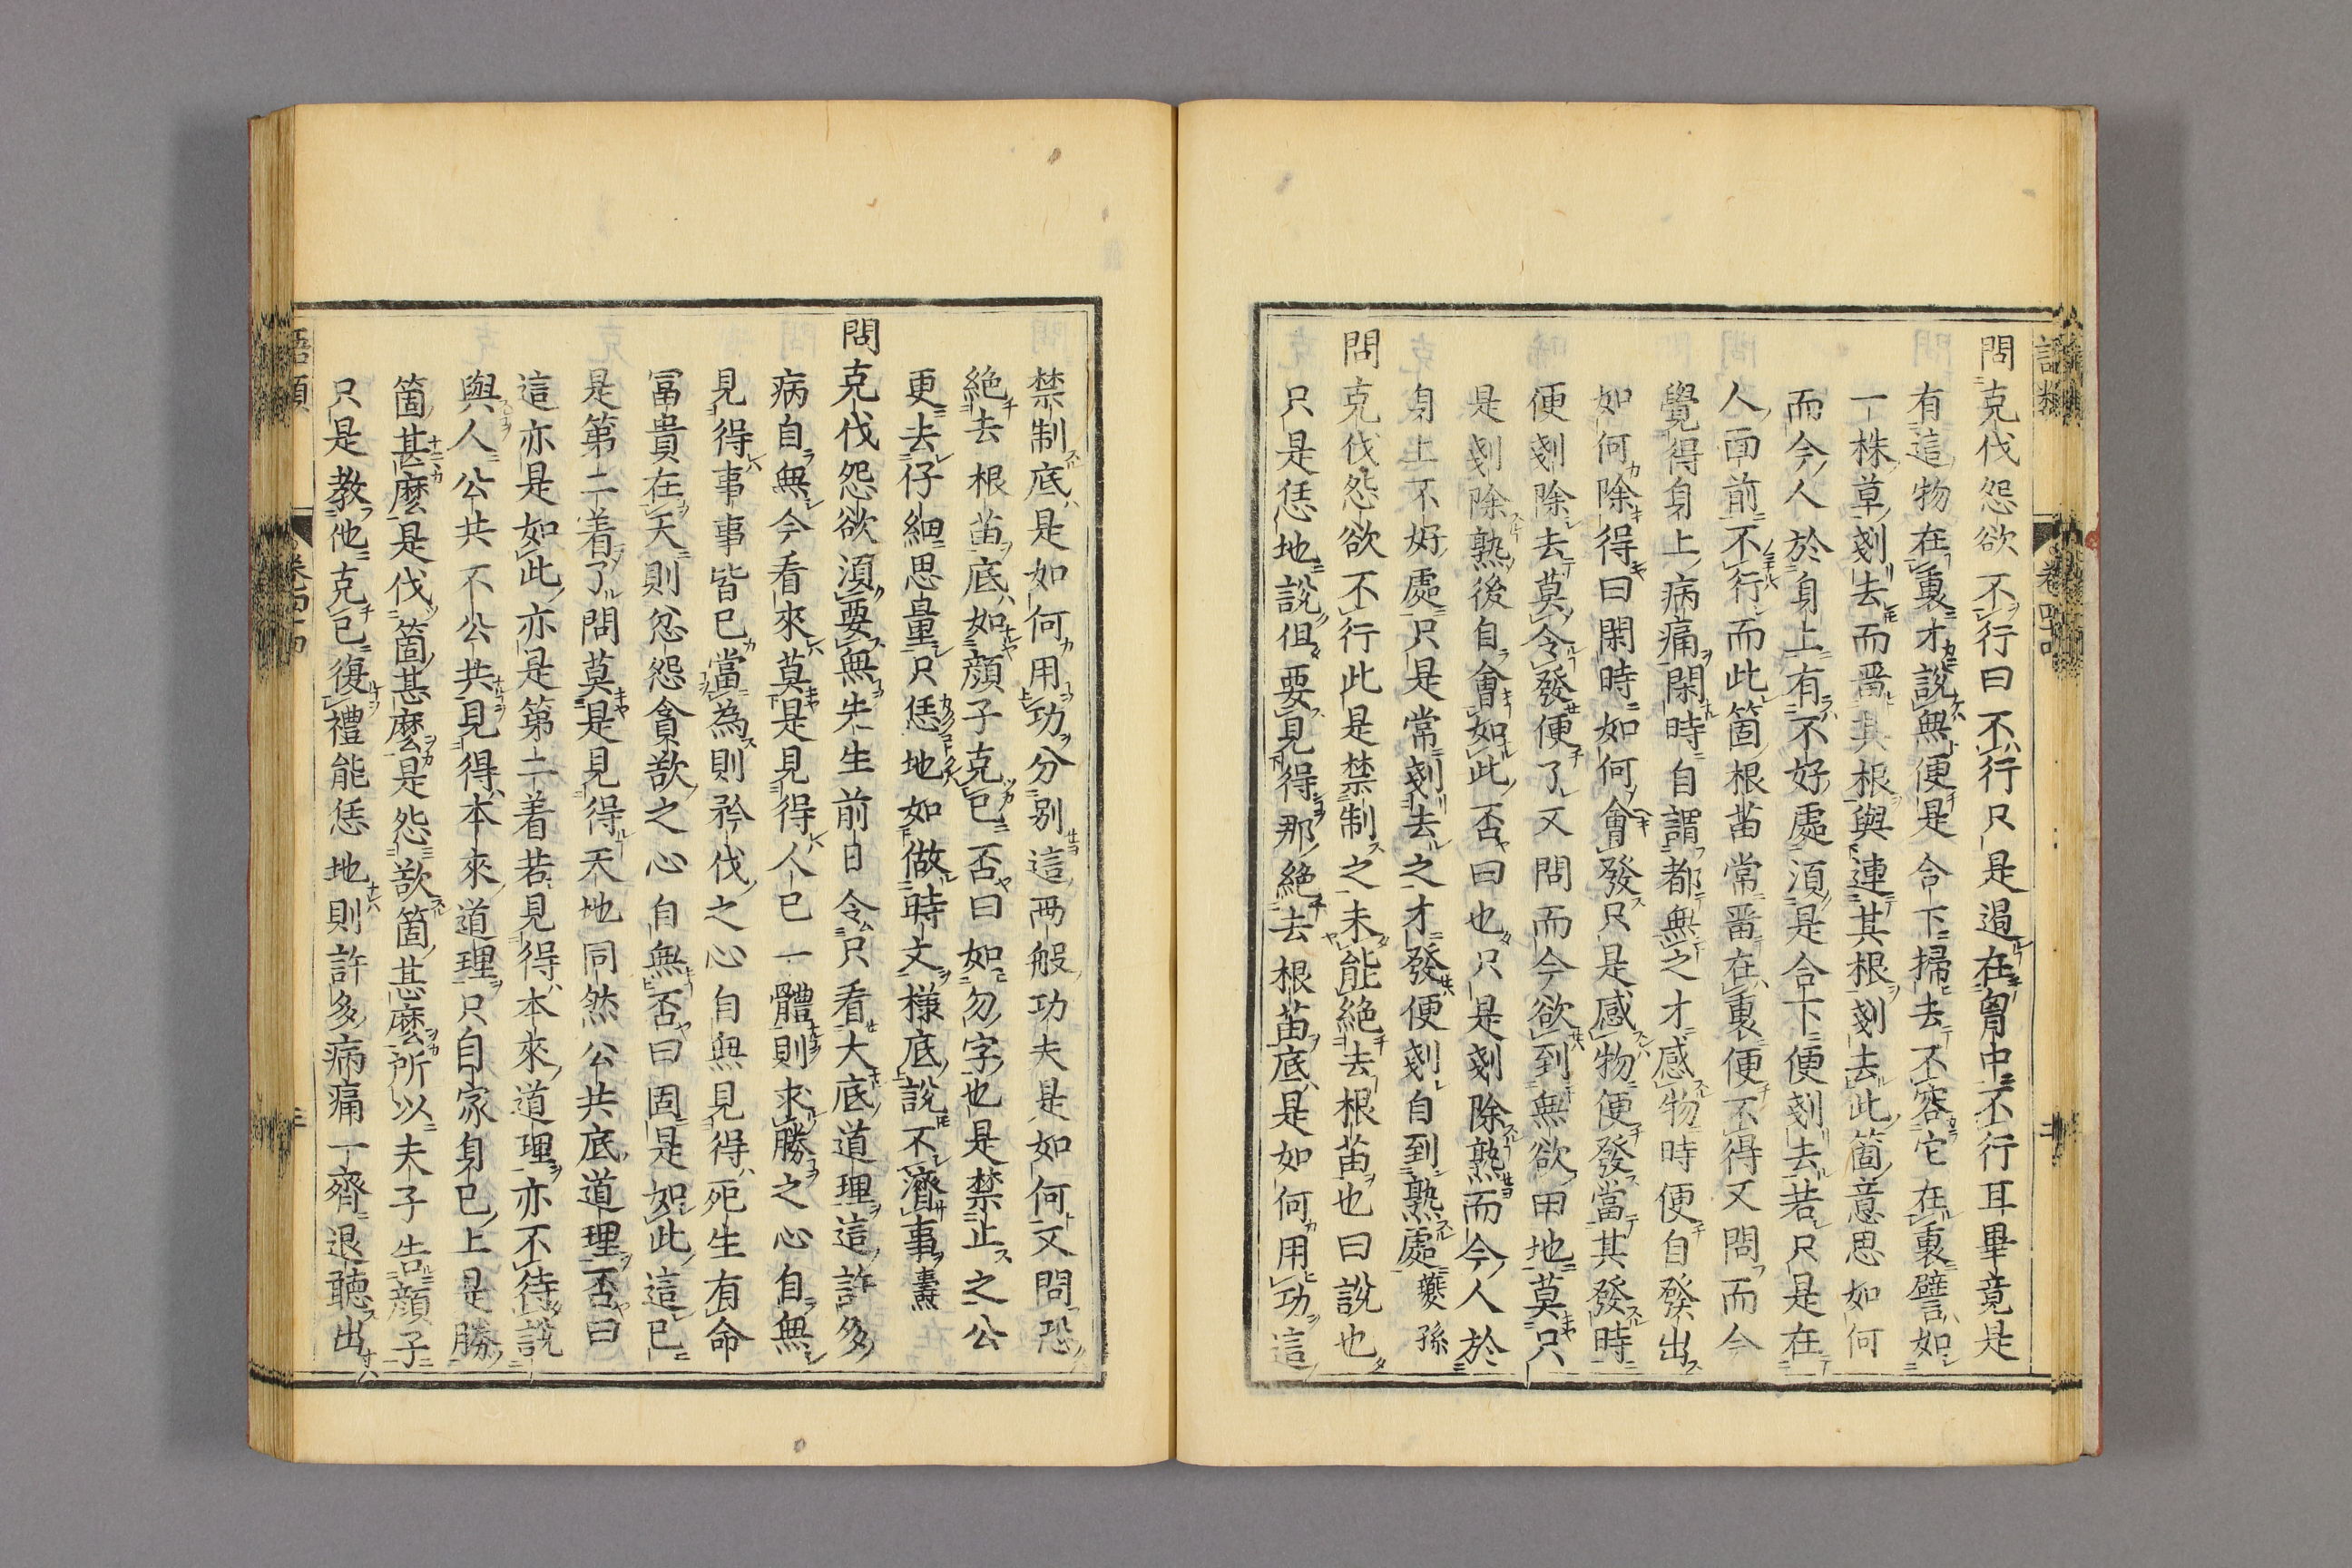 語類 卷四十四 二
問克伐怨欲不行曰不行只是遏在胷中不行耳畢竟是
有這物在裏才說無便是合下掃去不容它在裏譬如
一株草剗去而畱其根與連其根剗去此箇意思如何
而今人於身上有不好處須是合下便剗去若只是在
人面前不行而此箇根苗常畱在裏便不得又問而今
覺得身上病痛閑時自謂都無之才感物時便自發出
如何除得曰閑時如何會發只是感物便發當其發時
便剗除去莫令發便了又問而今欲到無欲田地莫只
是剗除熟後自會如此否曰也只是剗除熟而今人於
身上不好處只是常剗去之才發便剗自到熟處 夔孫
問克伐怨欲不行此是禁制之未能絕去根苗也曰說也
只是恁地說但要見得那絕去根苗底是如何用功這
禁制底是如何用功分別這兩般功夫是如何又問恐
絕去根苗底如顔子克己否曰如勿字也是禁止之公
更去仔細思量只恁地如做時文樣底說不濟事 燾
問克伐怨欲須要無先生前日令只看大底道理這許多
病自無今看來莫是見得人己一體則求勝之心自無
見得事事皆己當為則矜伐之心自無見得死生有命
冨貴在天則忿怨貪欲之心自無否曰固是如此這已
是第二着了問莫是見得天地同然公共底道理否曰
這亦是如此亦是第二着若見得本來道理亦不待說
與人公共不公共見得本來道理只自家身己上是勝
箇甚麽是伐箇甚麽是怨欲箇甚麽所以夫子告顔子
只是教他克己復禮能恁地則許多病痛一齊退聽出
語類 卷四十四 三